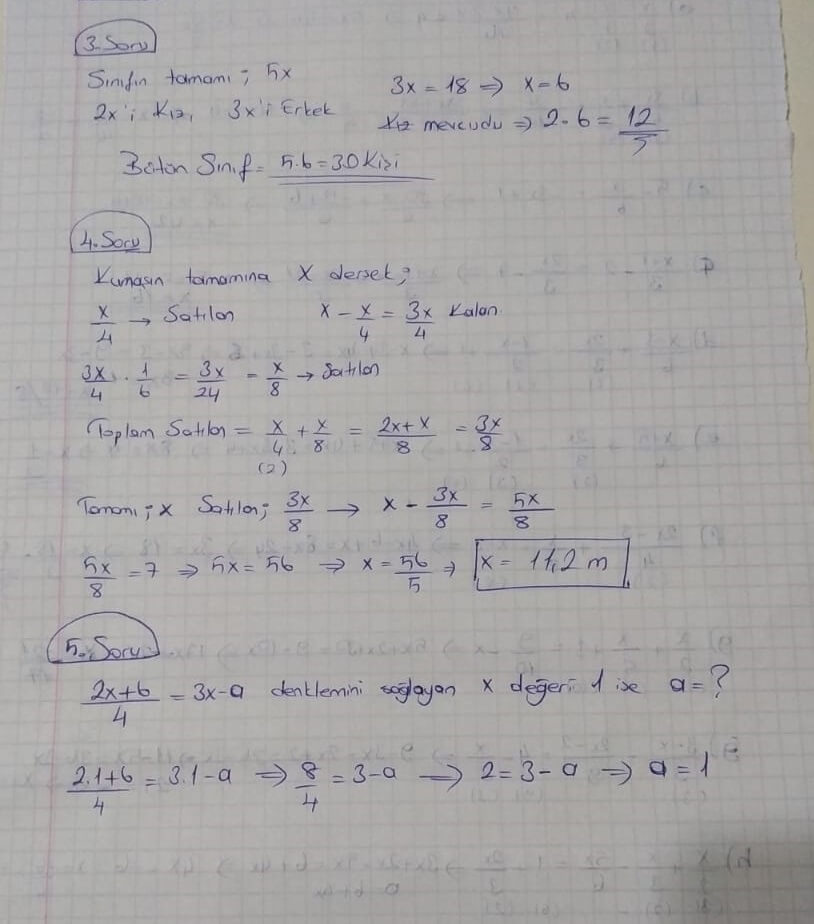 3. Soru
Sınıfın tamamı; 5x
3x = 18 ⇒ x=6
2x'i Kız, 3x'i Erkek
Kız mevcudu ⇒ 2·6 = 12
Bütün Sınıf = 5.6=30 Kişi
4. Soru
Kumaşın tamamına x dersek;
x/4 → Satılan x - x/4 = 3x/4 Kalan
3x/4 · 1/6 = 3x/24 = x/8 → Satılan
Toplam Satılan = x/4 + x/8 = 2x+x/8 = 3x/8
(2)
Tamamı; x Satılan; 3x/8 → x - 3x/8 = 5x/8
5x/8 = 7 ⇒ 5x = 56 ⇒ x = 56/5 ⇒ x = 11,2 m
5. Soru
2x+6/4 = 3x-a denklemini sağlayan x değeri 1 ise a=?
2.1+6/4 = 3.1-a ⇒ 8/4 = 3-a → 2=3-a ⇒ a=1